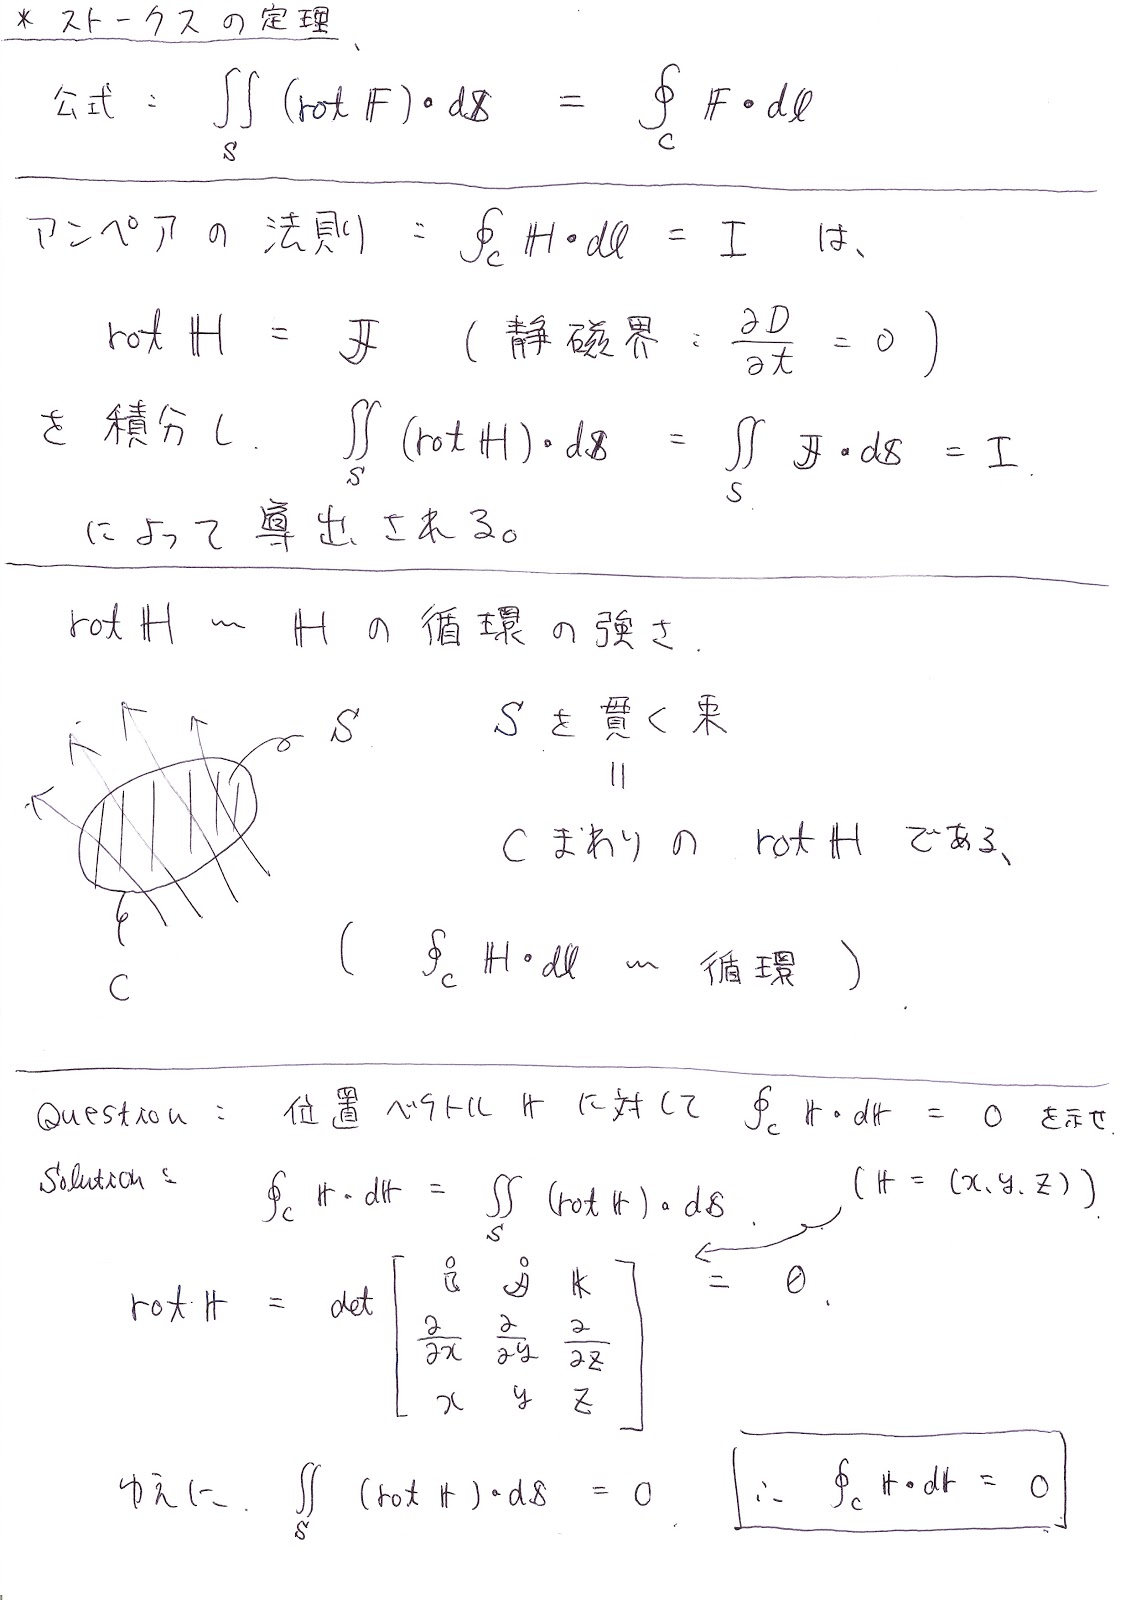 * ストークスの定理、
公式 : ∬_S (rot 𝔽)・d𝕊 = ∮_C 𝔽・dℓ
アンペアの法則 : ∮_C ℍ・dℓ = I は、
rot ℍ = 𝕁 ( 静磁界 : ∂D/∂t = 0 )
を積分し. ∬_S (rot ℍ)・d𝕊 = ∬_S 𝕁・d𝕊 = I.
によって導出される。
rot ℍ 〜 ℍ の循環の強さ.
S
Sを貫く束
||
Cまわりの rot ℍ である、
( ∮_C ℍ・dℓ 〜 循環 ).
C
Question : 位置ベクトル 𝕣 に対して ∮_C 𝕣・d𝕣 = 0 を示せ.
Solution : ∮_C 𝕣・d𝕣 = ∬_S (rot 𝕣)・d𝕊. (𝕣 = (x、y、z)).
rot 𝕣 = det [ 𝕚 𝕛 𝕜 ; ∂/∂x ∂/∂y ∂/∂z ; x y z ] = 0.
ゆえに. ∬_S (rot 𝕣)・d𝕊 = 0. ∴ ∮_C 𝕣・d𝕣 = 0